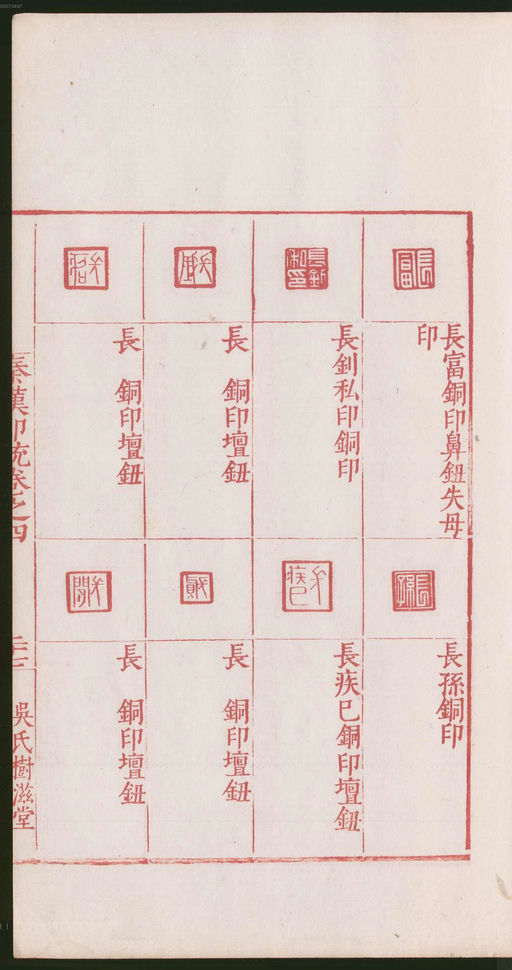 長富銅印鼻鈕失母
印
長釗私印銅印
長　銅印壇鈕
長　銅印壇鈕
長孫銅印
長疾已銅印壇鈕
長　銅印壇鈕
長　銅印壇鈕
秦漢印統卷之四
吳氏樹滋堂
00073497